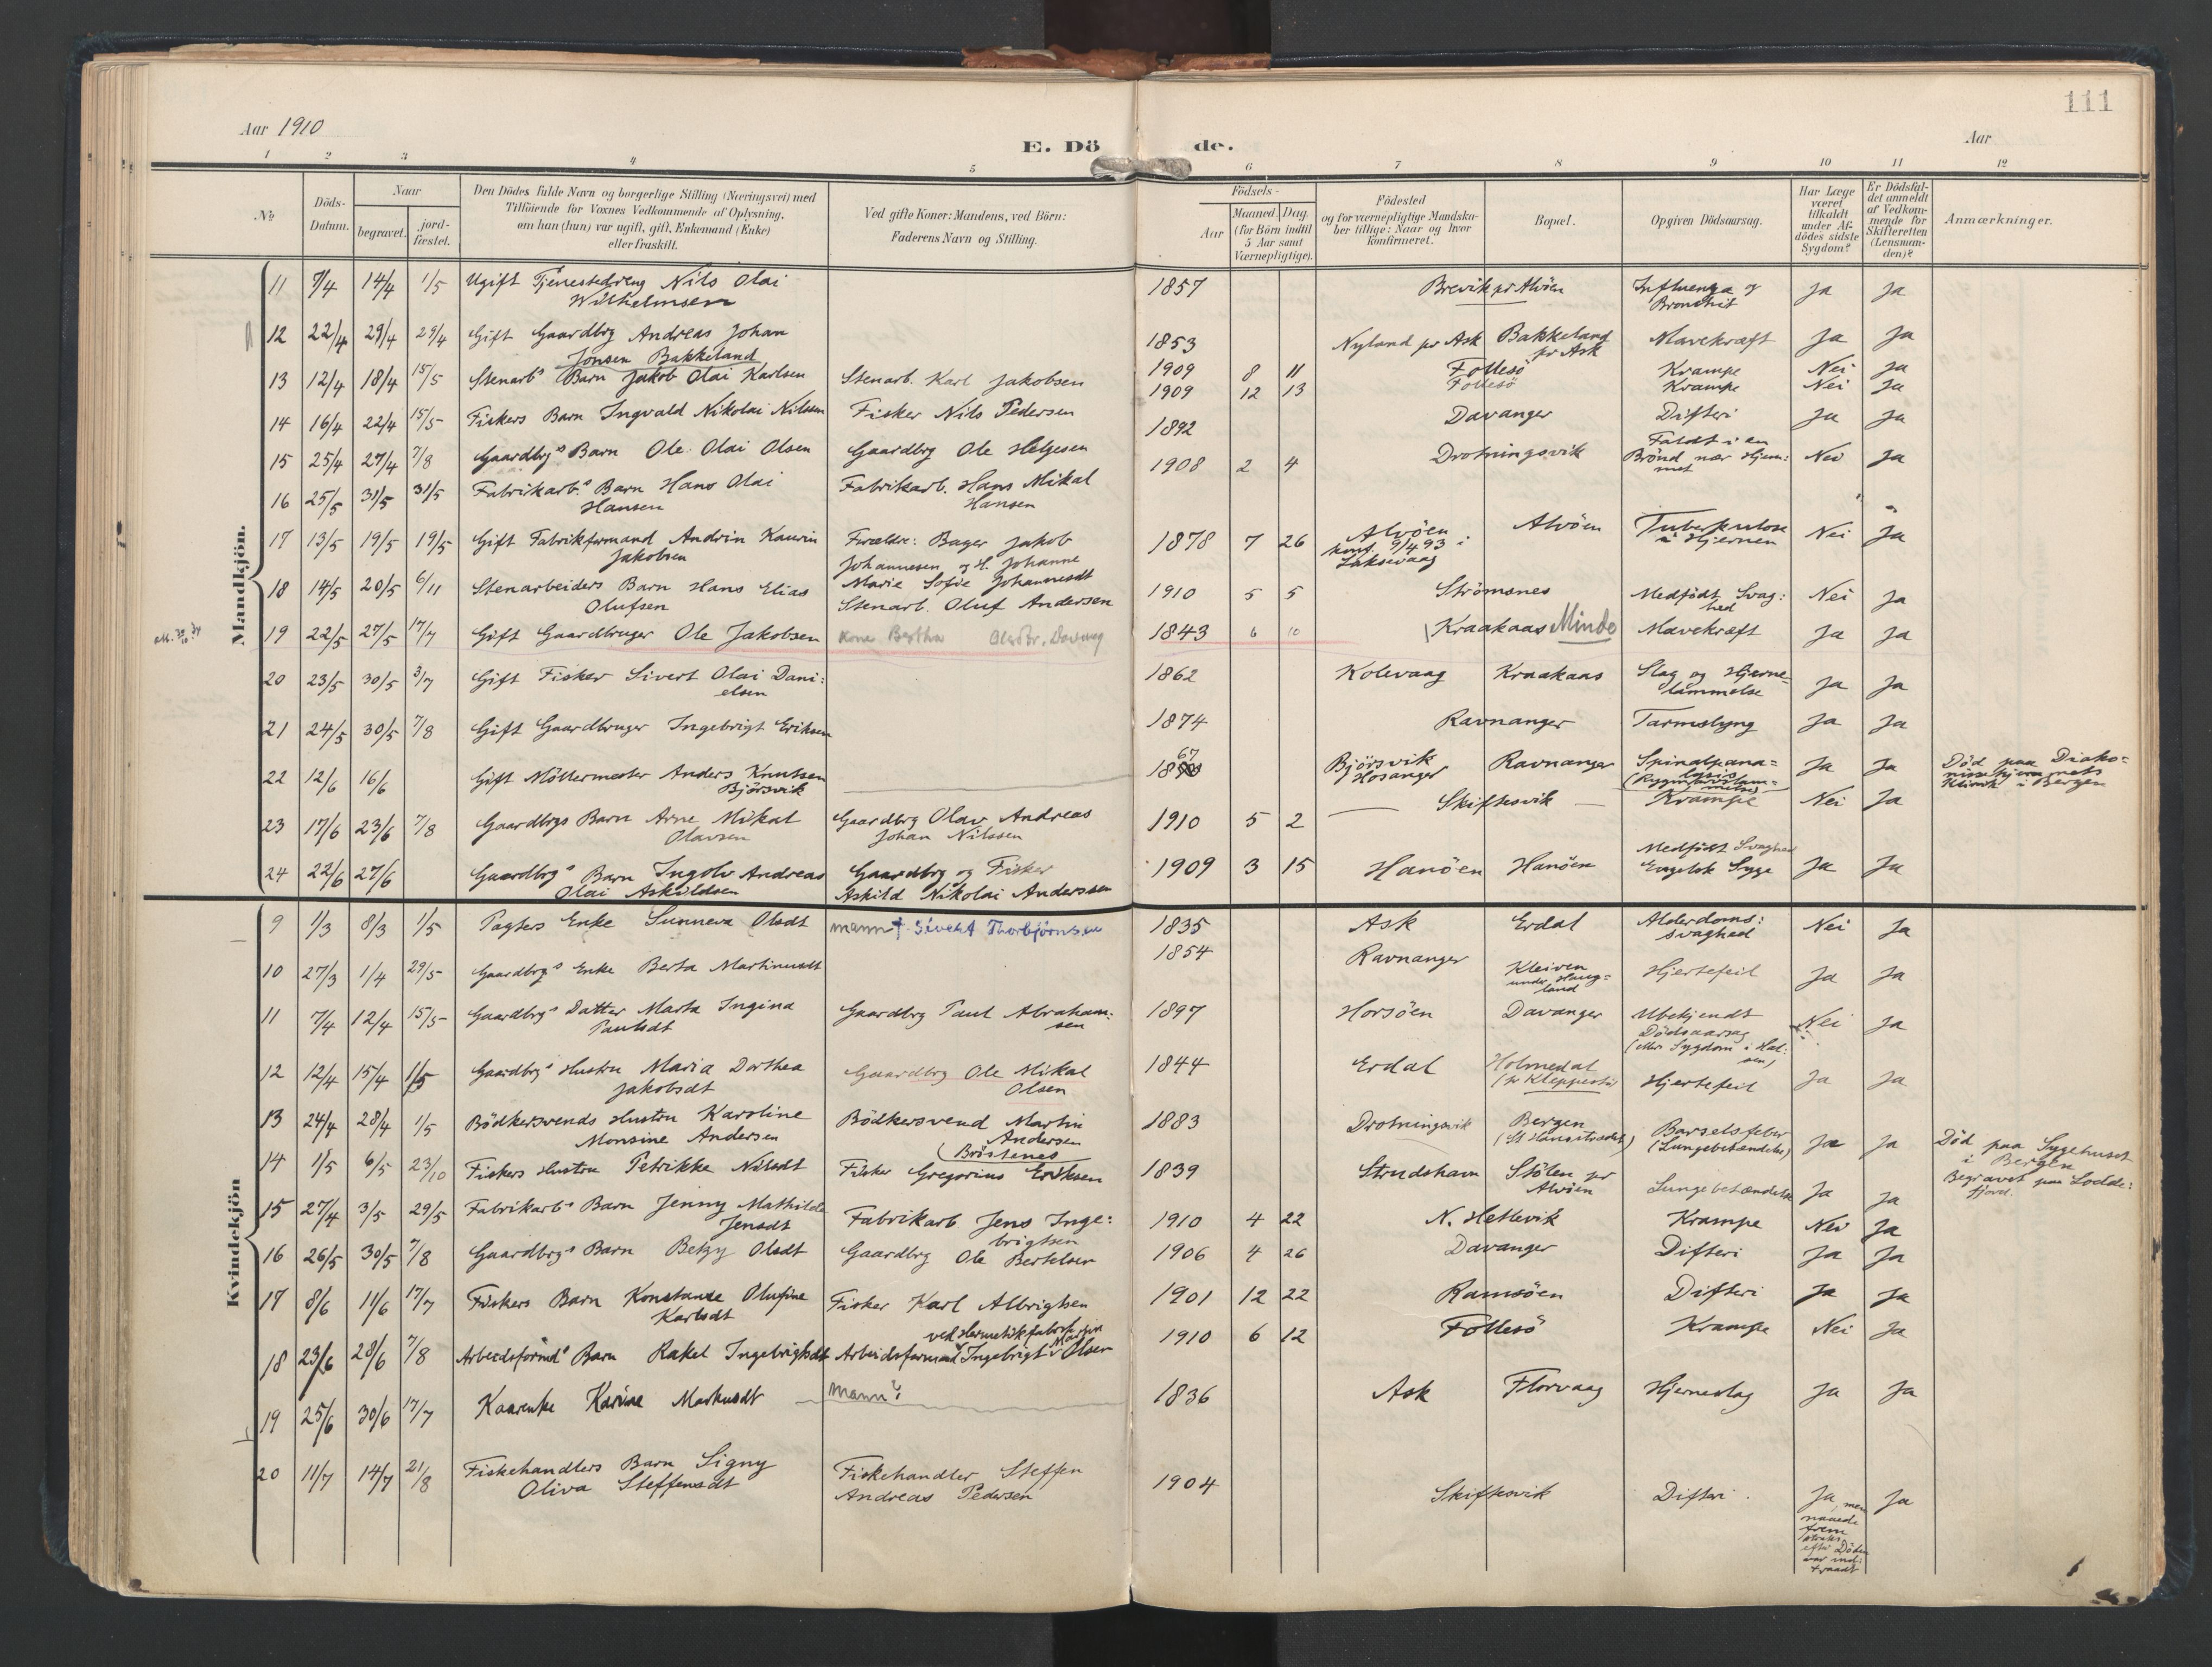 111
Aar 1910
E. Dö de.
Aar
1 2 3 4 5 6 7 8 9 10 11 12
No
Döds-Datum.
Naar
begravet.
jord-fæstet.
Den Dödes fulde Navn og borgerlige Stilling (Næringsvei) med
Tilföiende for Voxnes Vedkommende af Oplysning,
om han (hun) var ugift, gift, Enkemand (Enke)
eller fraskilt.
Ved gifte Koner: Mandens, ved Börn:
Faderens Navn og Stilling.
Födsels-
Aar
Maaned. Dag.
(for Börn indtil
5 Aar samt
Værnepligtige).
Födested
og for værnepligtige Mandska-
ber tillige: Naar og hvor
konfirmeret.
Bopæl.
Opgiven Dödsaarsag.
Har Læge
været
tilkaldt
under Af-
dödes sidste
Sygdom?
Er Dödsfal-
det anmeldt
af Vedkom-
mende for
Skifteretten
(Lensman-
den)?
Anmærkninger.
Mandkjön.
11 7/4 14/4 1/5 Ugift Tjenestedreng Nils Olai 1857 Brevik pr Alvöen Influenza og Ja Ja
Wilhelmsen Bronchit
12 22/4 29/4 29/4 Gift Gaardbrg Andreas Johan 1853 Nyland pr Ask Bakkeland Mavekræft Ja Ja
Jonsen Bakkeland pr Ask
13 12/4 18/4 15/5 Stenarbs Barn Jakob Olai Karlsen Stenarb. Karl Jakobsen 1909 8 11 Follesö Krampe Nei Ja
1909 12 13 Follesö Krampe Nei Ja
14 16/4 22/4 15/5 Fiskers Barn Ingvald Nikolai Nilssen Fisker Nils Pedersen 1892 Davanger Difteri Ja Ja
15 25/4 27/4 7/8 Gaardbrgs Barn Ole Olai Olsen Gaardbrg Ole Helgesen 1908 2 4 Drotningsvik Faldt i en Nei Ja
Brönd nær Hjem:
met
16 25/5 31/5 31/5 Fabrikarb.s Barn Hans Olai Fabrikarb. Hans Mikal
Hansen Hansen
17 13/5 19/5 19/5 Gift Fabrikformand Andrin Kaurin Forældre: Bager Jakob 1878 7 26 Alvöen Alvöen Tuberkulose Nei Ja
Jakobsen Johannesen og H. Johanne konf. 9/4 93 i i Hjernen
Marie Sofie Johannesdt Laksevaag
18 14/5 20/5 6/11 Stenarbeiders Barn Hans Elias Stenarb. Oluf Andersen 1910 5 5 Strömsnes Medfödt Svag: Nei Ja
Olufsen hed
19 22/5 27/5 17/7 Gift Gaardbruger Ole Jakobsen Kone Bertha 1843 6 10 Kraakaas Minde Mavekræft Ja Ja
20 23/5 30/5 3/7 Gift Fisker Sivert Olai Dani: 1862 Kolevaag Kraakaas Slag og Hjerne- Ja Ja
elsen lammelse
21 24/5 30/5 7/8 Gift Gaardbruger Ingebrigt Eriksen 1874 Ravnanger Tarmslyng Ja Ja
22 12/6 16/6 Gift Möllermester Anders Knutsen 1867 Björsvik Ravnanger Spinalpara- Ja Ja Död paa Diako-
Björsvik Hosanger lysis nissehjemmets
(Rygmarvslam- Klinik i Bergen
melse)
23 17/6 23/6 7/8 Gaardbrgs Barn Arne Mikal Gaardbrg Olav Andreas 1910 5 2 Skiftesvik Krampe Nei Ja
Olavsen Johan Nilssen
24 22/6 27/6 Gaardbrgs Barn Ingolv Andreas Gaardbrg og Fisker 1909 3 15 Hanöen Hanöen Medfödt Svaghed Ja Ja
Olai Askildsen Askild Nikolai Anderssen Engelsk Syge
Kvindekjön
9 1/3 8/3 1/5 Pagters Enke Sunneva Olsdt mann † Sivert Thorbjørnsen 1835 Ask Erdal Alderdoms: Nei Ja
svaghed
10 27/3 1/4 29/5 Gaardbrgs Enke Berta Martinusdt 1854 Ravnanger Kleiven Hjertefeil Ja Ja
under Haug-
land
11 7/4 12/4 15/5 Gaardbrgs Datter Marta Ingina Gaardbrg Paul Abraham: 1897 Horsöen Davanger Ubekjendt Nei Ja
Paulsdt sen Dödsaarsag
(eller Sygdom i Hal:
sen)
12 12/4 15/4 1/5 Gaardbrgs Hustru Maria Dorthea Gaardbrg Ole Mikal 1844 Erdal Holmedal Hjertefeil Ja Ja
Jakobsdt Olsen (pr Kleppestö)
13 24/4 28/4 1/5 Bödkersvends Hustru Karoline Bödkersvend Martin 1883 Drotningsvik Bergen Barselsfeber Ja Ja Död paa Sygehuset
Monsine Andersen Andersen (St Hansstrædet) (Lungebetændelse) i Bergen
(Bröstenes Begravet paa Lodde:
fjord.
14 1/5 6/5 23/10 Fiskers Hustru Petrikke Nilsdt Fisker Gregorius Eriksen 1839 Strudshavn Stölen pr Lungebetændelse Ja Ja
Alvöen
15 27/4 3/5 29/5 Fabrikarbs Barn Jenny Mathilde Fabrikarb. Jens Inge: 1910 4 22 N. Hetlevik Krampe Nei Ja
Jensdt brigtsen
16 26/5 30/5 7/8 Gaardbrgs Barn Betzy Olsdt Gaardbrg Ole Bertelsen 1906 4 26 Davanger Difteri Ja Ja
17 8/6 11/6 17/7 Fiskers Barn Konstanse Olufine Fisker Karl Albrigtsen 1901 12 22 Ramsöen Difteri Ja Ja
Karlsdt
18 23/6 28/6 7/8 Arbeidsformds Barn Rakel Ingebrigtsdt ved Hermetikfabrik 1910 6 12 Follesö Krampe Nei Ja
Arbeidsformand Ingebrigt Martin Olsen
19 25/6 30/6 17/7 Kaarenke Karine Markusdt Mann? 1836 Ask Florvaag Hjerneslag Ja Ja
20 11/7 14/7 21/8 Fiskehandlers Barn Signy Fiskehandler Steffen 1904 Skiftesvik Difteri Ja, men Ja
Oliva Steffensdt Andreas Pedersen naaede
frem
straks
efter Döden
var ind:
traadt